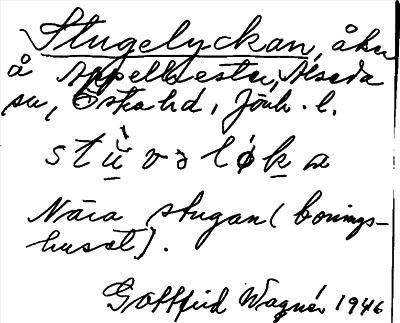 Stugelyckan, åker
å Appelhester, Alseda
sn, Östra hd, Jönk. l.
stù̱vəløḵa
Nära stugan (bonings-
huset).
Gottfrid Wagnér 1946